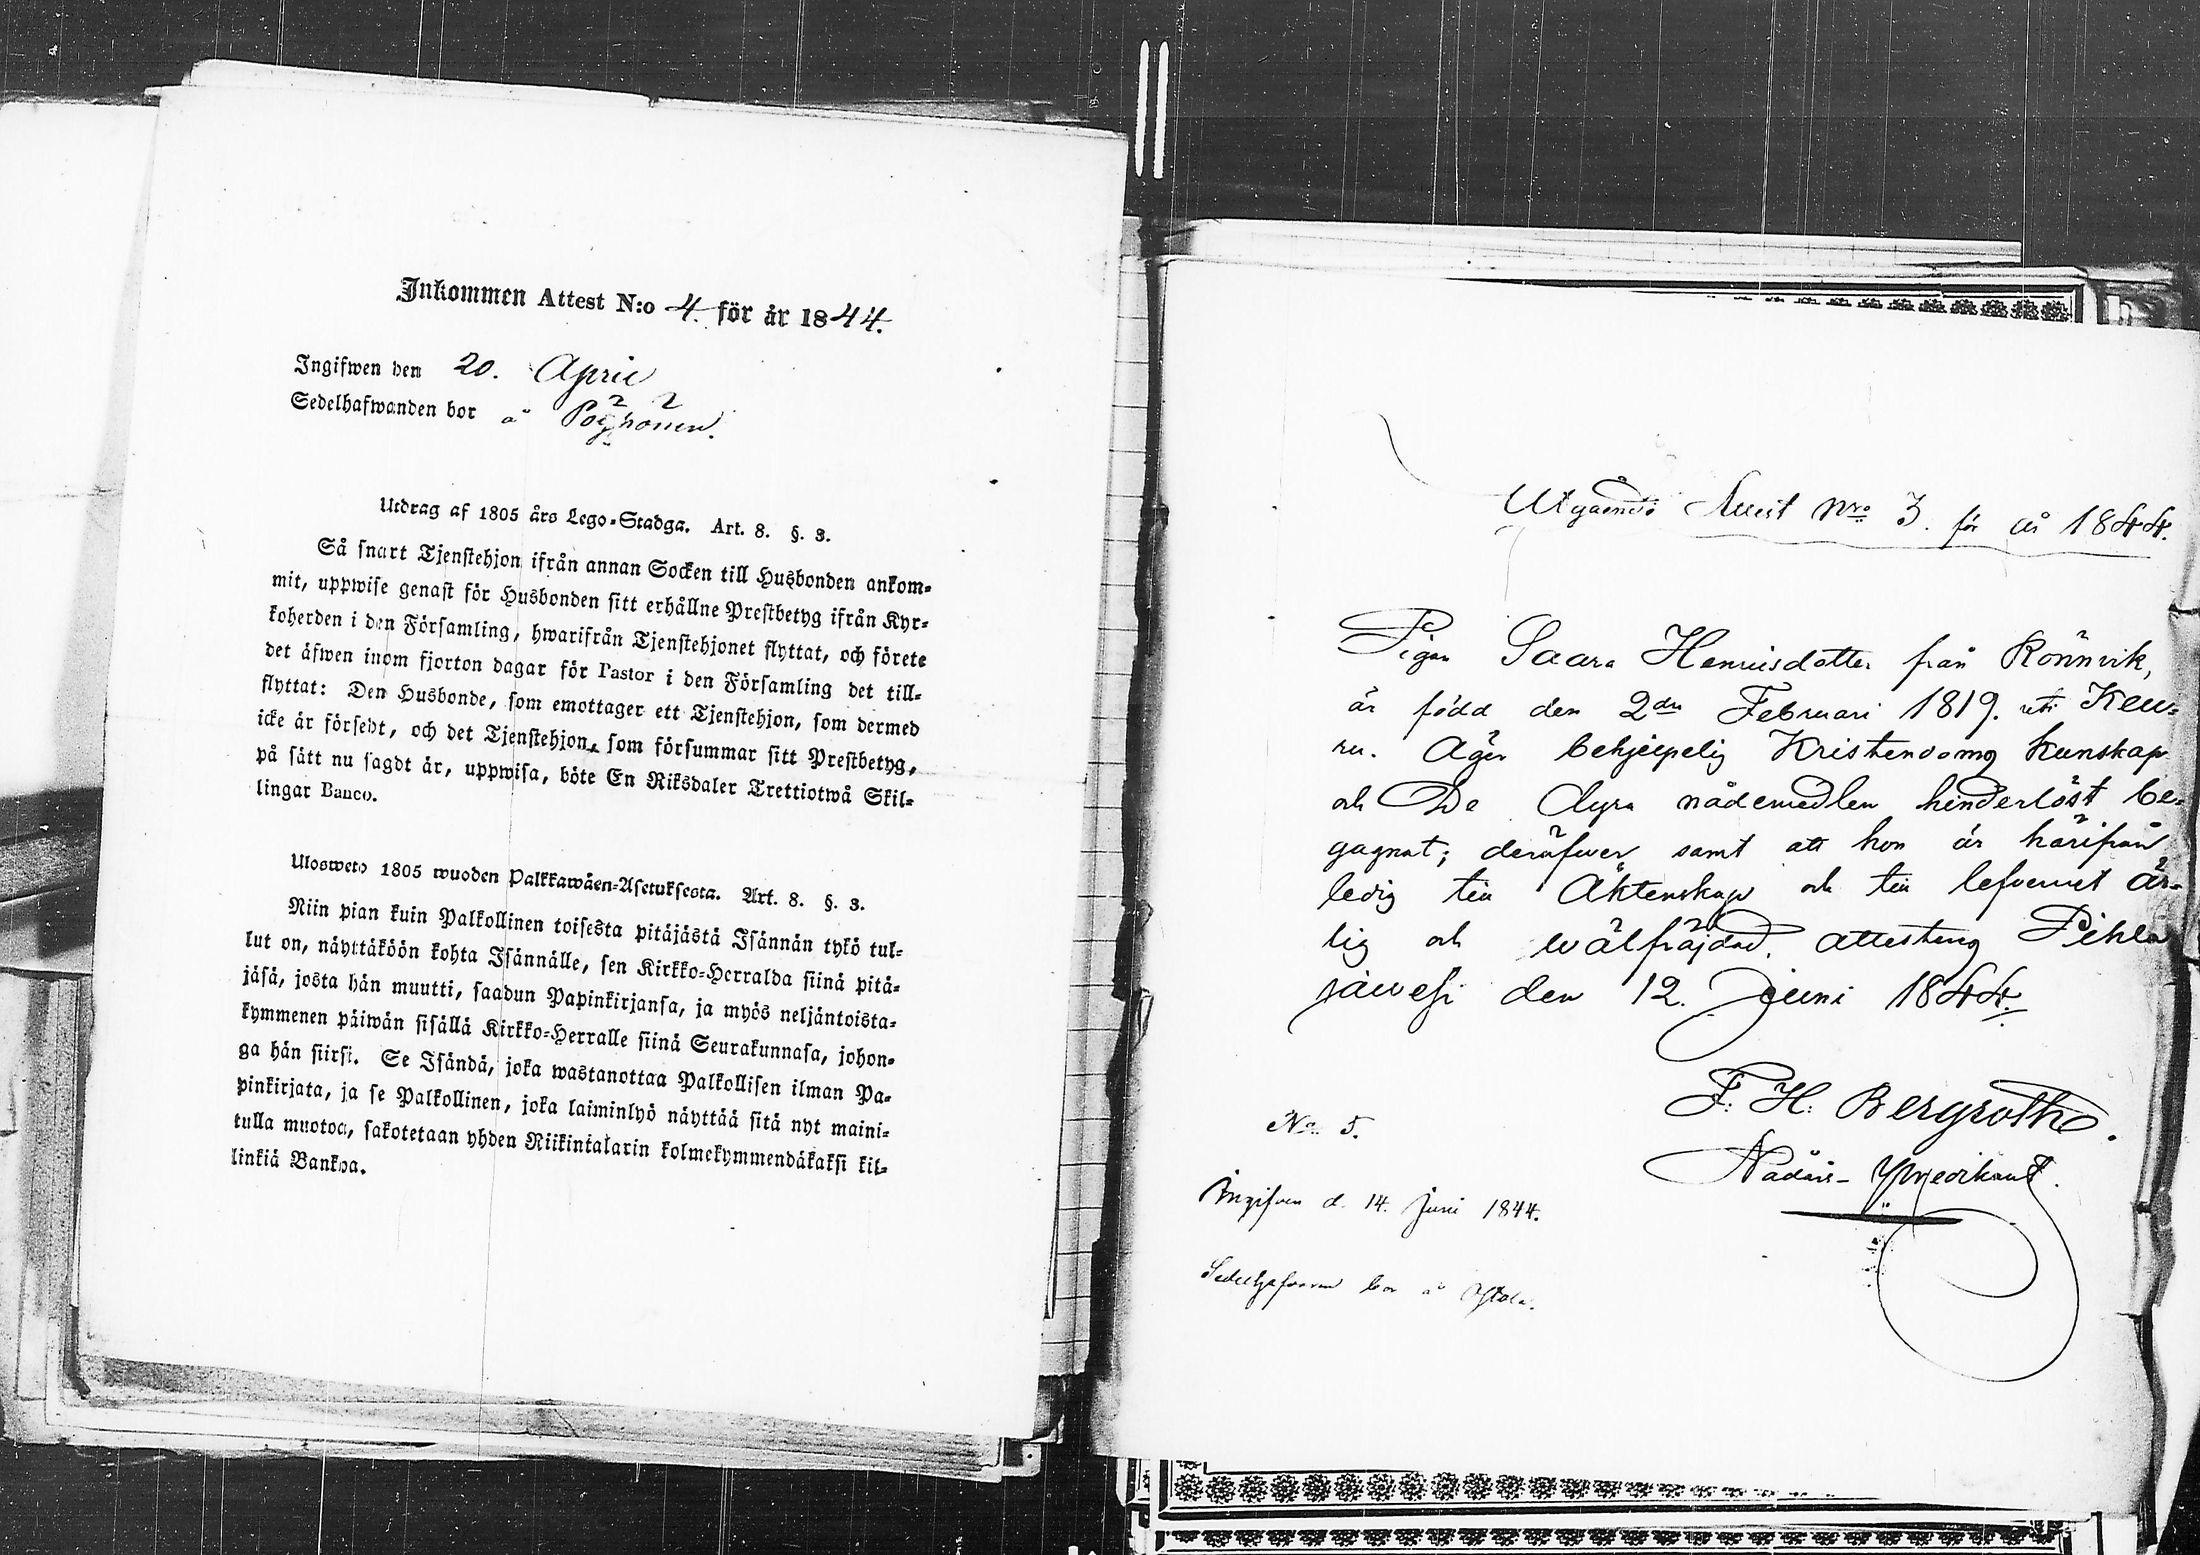 Inkommen Attest N:o 4. för år 1844.
Ingifwen den 20. April
Sedelhafwanden bor å
Utdrag af 1805 års Lego-Stadga. Art. 8. §. 3.
Så snart Tjenstehjon ifrån annan Socken till Husbonden ankom-
mit, uppwise genast för Husbonden sitt erhållne Prestbetyg ifrån Kyr-
koherden i den Församling, hwarifrån Tjenstehjonet flyttat, och förete
det äfwen inom fjorton dagar för Pastor i den Församling det till-
flyttat: Den Husbonde, som emottager ett Tjenstehjon, som dermed
icke är försedt, och det Tjenstehjon, som försummar sitt Prestbetyg,
på sätt nu sagdt är, uppwisa, böte En Riksdaler Trettiotwå Skil-
lingar Banco.
Ulosweto 1805 wuoden Palkkawäen-Asetuksesta. Art. 8. §. 3.
Niin pian kuin Palkollinen toisesta pitäjästä Isännän tykö tul-
lut on, näyttäköön kohta Isännälle, sen Kirkko-Herralda siinä pitä-
jäsä, josta hän muutti, saadun Papinkirjansa, ja myös neljäntoista-
kymmenen päiwän sisällä Kirkko-Herralle siinä Seurakunnasa, johon-
ga hän siirsi. Se Isändä, joka wastanottaa Palkollisen ilman Pa-
pinkirjata, ja se Palkollinen, joka laiminlyö näyttää sitä nyt maini-
tulla muotoa, sakotetaan yhden Riikintalarin kolmekymmendäkaksi kil-
linkiä Bankoa.
Utgående Attest Nro 3. för år 1844.
Pigan Saara Henricsdotter från Rönnvik,
är född den 2dn Februari 1819. uti Keu-
ru. Äger behjelpelig Kristendoms kunskap
och De dyra nådemedlen hinderlöst be-
gagnat; deröfwer samt att hon är härifrån
ledig till Äktenskap och till lefvernet är-
lig och wälfräjdad, attesteras Pihla
jäwesi den 12. Juni 1844.
F. H. Bergroth.
Nådårs-Predikant.
No. 5.
Ingifven d. 14. Juni 1844.
Sedelhafvaren bor å